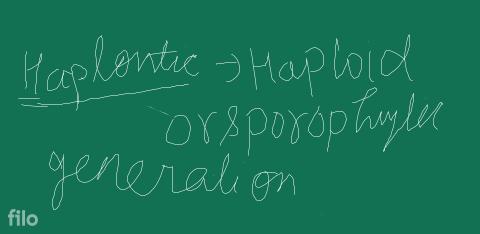 Haplontic → Haploid
or sporophyllic
generation
filo